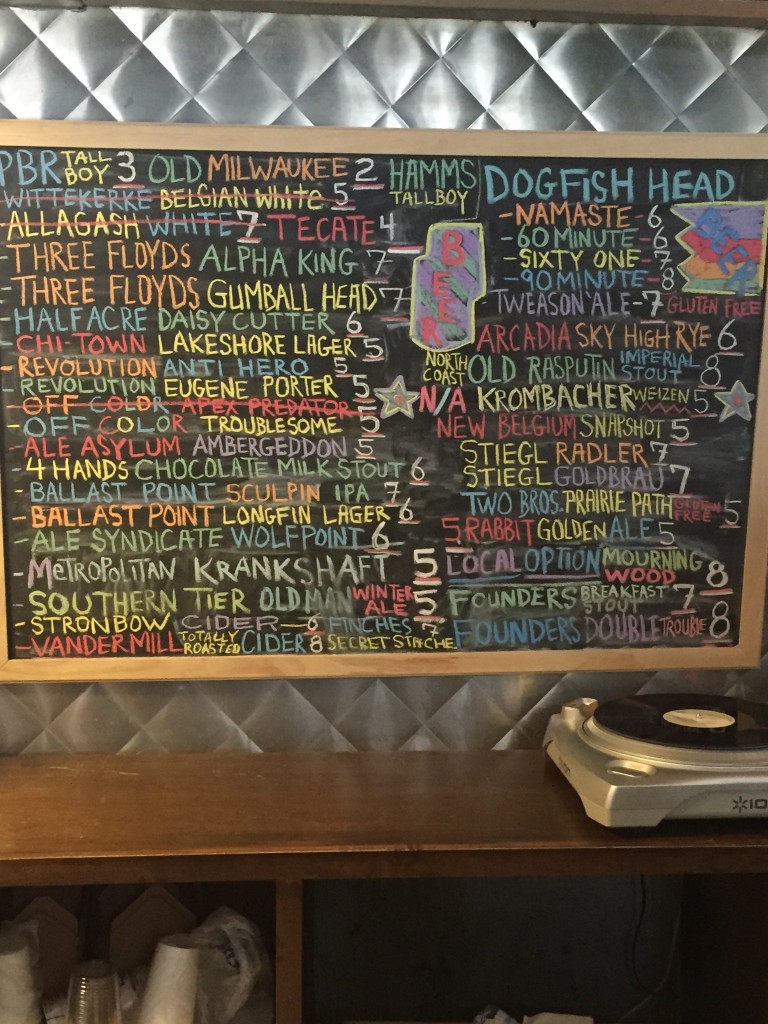 PBR TALL BOY 3 OLD MILWAUKEE 2
WITTEKERKE BELGIAN White 5
-ALLAGASH WHITE 7 TECATE 4
-THREE FLOYDS ALPHA KING 7
-THREE FLOYDS GUMBALL HEAD 7
-HALF ACRE DAISY CUTTER 6
-CHI-TOWN LAKESHORE LAGER 5
-REVOLUTION ANTI HERO 5
-REVOLUTION EUGENE PORTER 5
-OFF COLOR APEX PREDATOR 5
-OFF COLOR TROUBLESOME 5
-ALE ASYLUM AMBERGEDDON 5
-4 HANDS CHOCOLATE MILK STOUT 6
-BALLAST POINT SCULPIN IPA 7
-BALLAST POINT LONGFIN LAGER 6
-ALE SYNDICATE WOLFPOINT 6
-METROPOLITAN KRANKSHAFT 5
-SOUTHERN TIER OLD MAN WINTER ALE 5
-STRONBOW CIDER-6 FINCHES 7
-VANDERMILL TOTALLY ROASTED CIDER 8 SECRET STACHE
HAMMS TALLBOY
BEER
DOGFISH HEAD
-NAMASTE-6
-60 MINUTE-6
-SIXTY ONE-7
-90 MINUTE-8
BEER
-TWEASON ALE-7 GLUTEN FREE
ARCADIA SKY HIGH RYE 6
NORTH COAST OLD RASPUTIN IMPERIAL STOUT 8
N/A KROMBACHER WEIZEN 5
NEW BELGIUM SNAPSHOT 5
STIEGL RADLER 7
STIEGL GOLDBRAU 7
TWO BROS. PRAIRIE PATH GLUTEN FREE 5
5 RABBIT GOLDEN ALE 5
LOCAL OPTION MOURNING WOOD 8
FOUNDERS BREAKFAST STOUT 7
FOUNDERS DOUBLE TROUBLE 8
ION